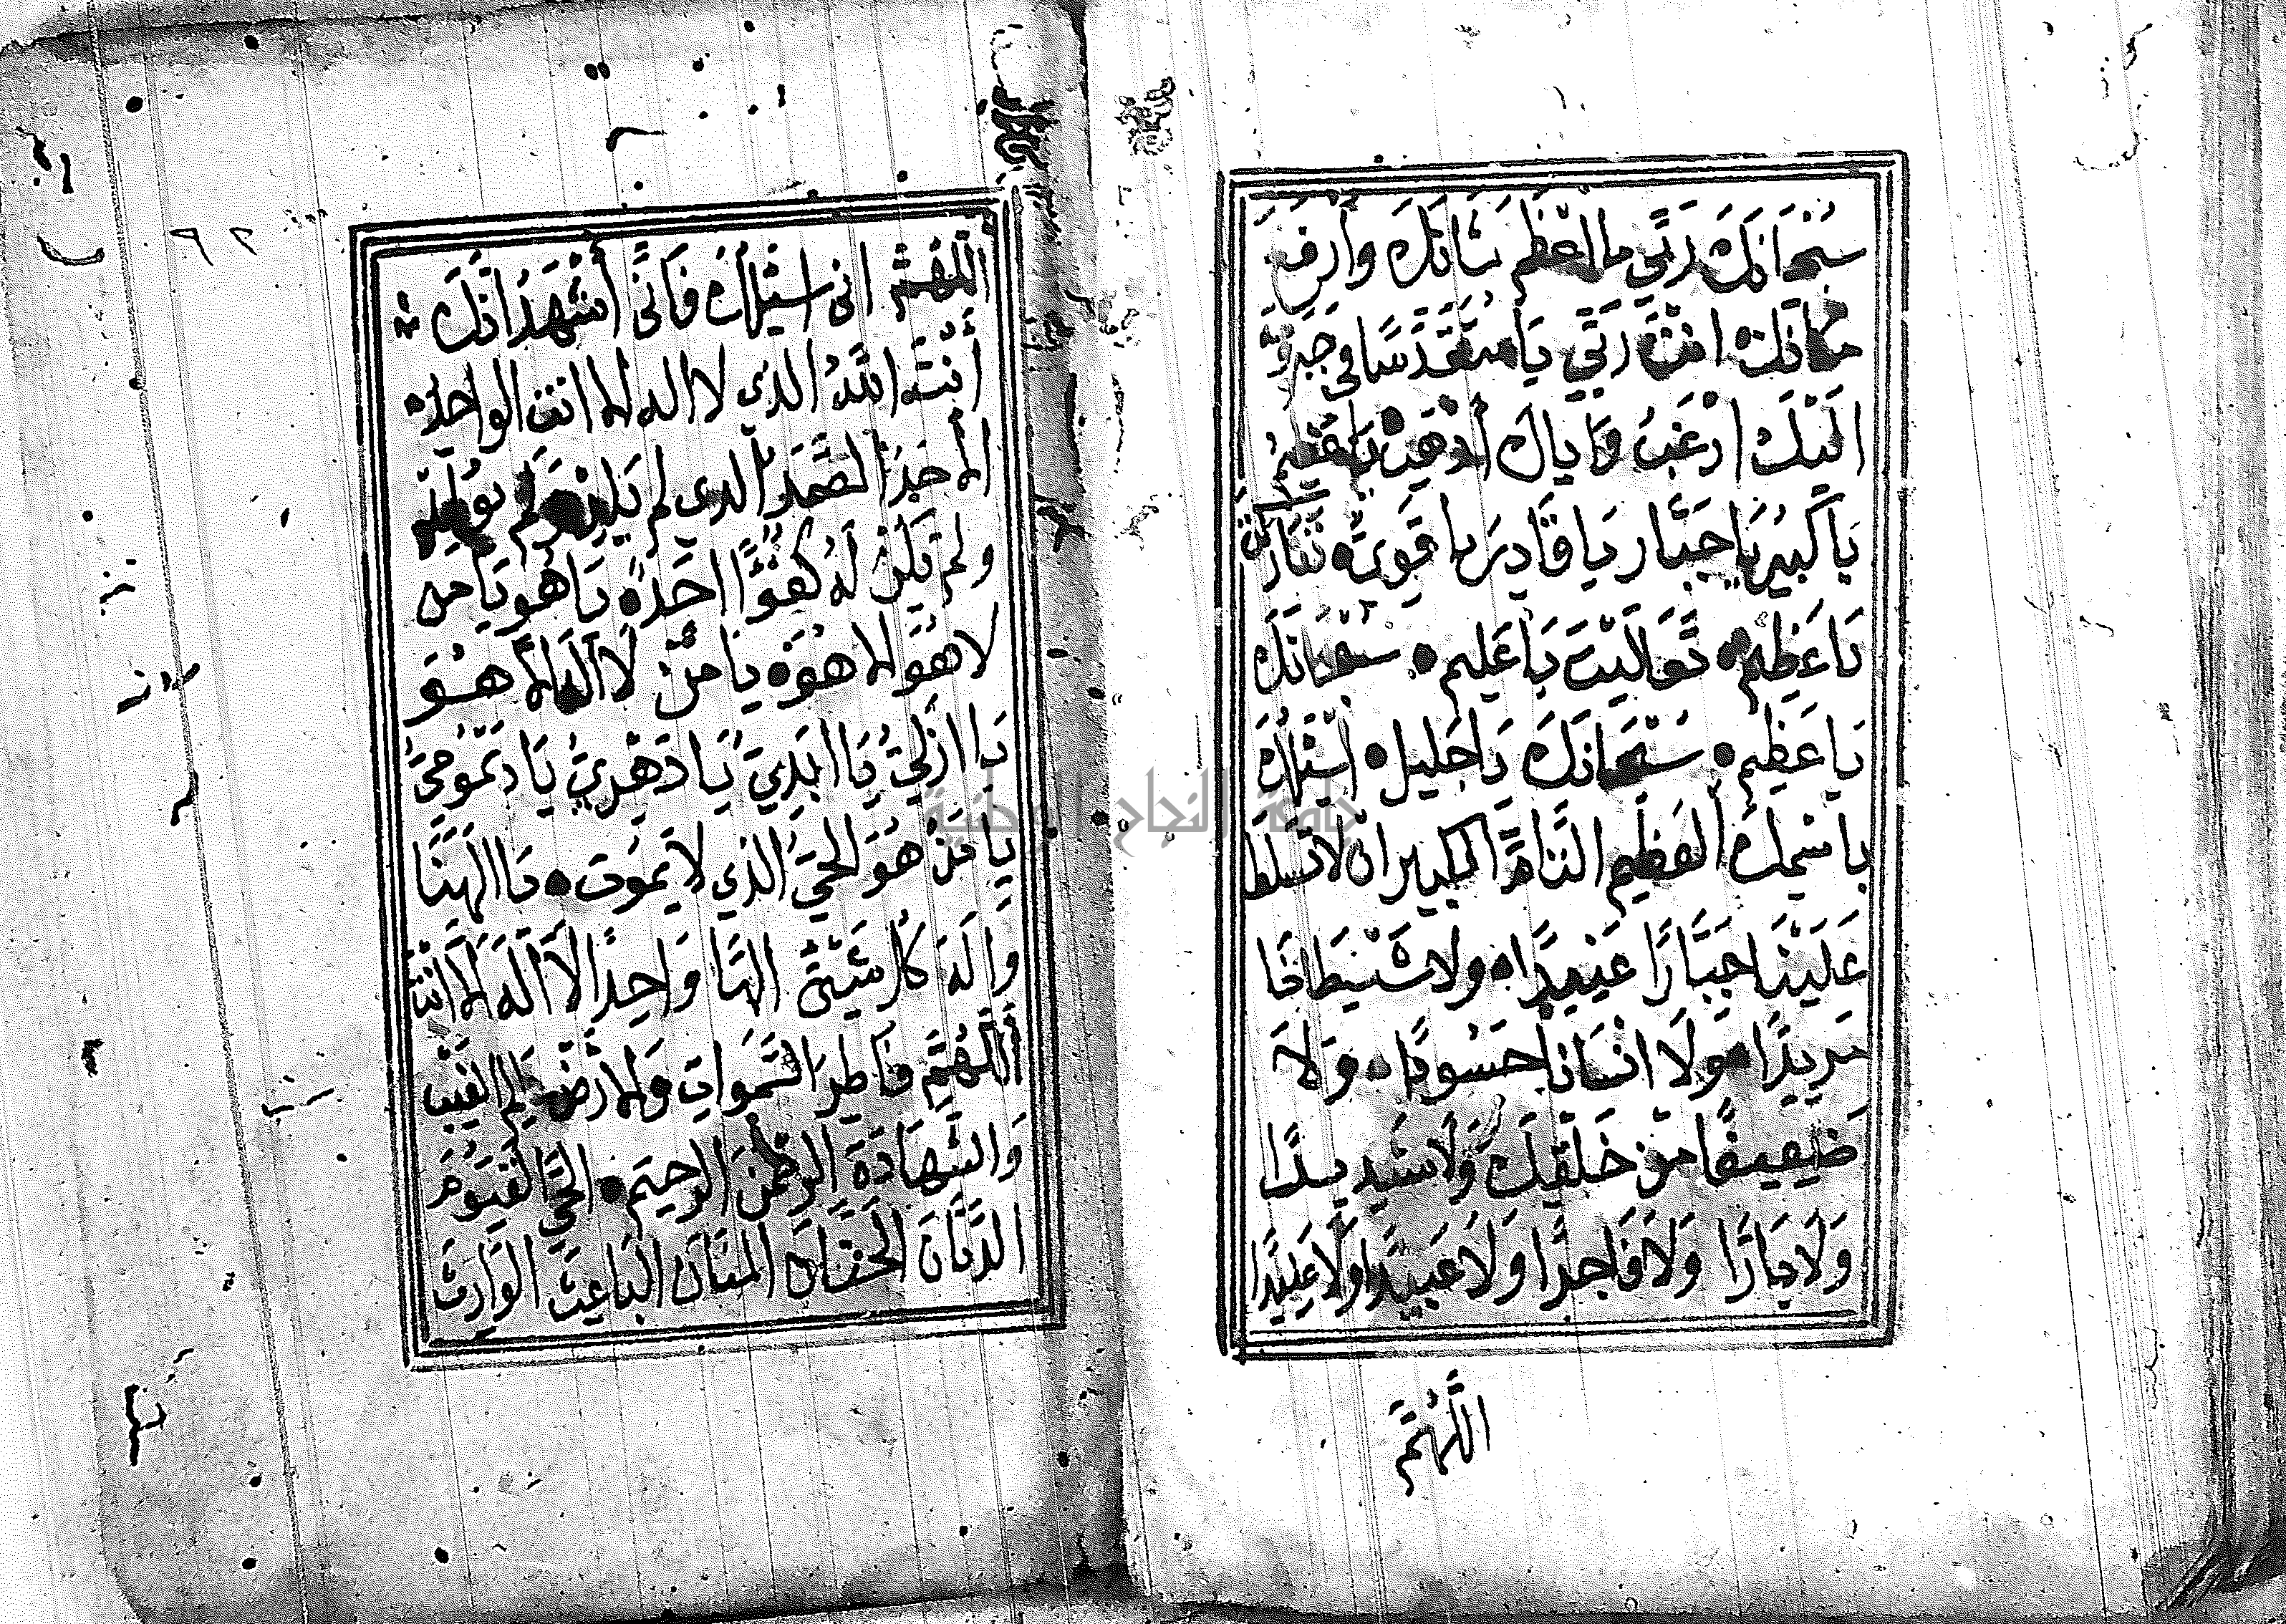 سُبْحَانَكَ رَبِّي ما اعْظَمَ شَانَكَ وَأَرفَعَ
مَكَانَكَ انتَ رَبِّي يَا مُتَقَدِّسًا في جَبَرُوتِه
الَيْكَ ارْغَبُ وَايَاكَ أرْهَبُ يَا عَظِيمُ
يَا كَبيرُ يَا جَبَّار يَا قَادِرُ يا قَوِيُّ تَبَارَكْتَ
يَا عَظِيم تَعَالَيْتَ يَا عَلِيم سُبْحَانَكَ
يَا عَظِيم سُبْحَانَكَ يَا جَلِيل اسْئَلُكَ
باسْمِكَ الْعَظِيمِ التَّامِّ الكبيرِ ان لَا تُسَلِّطَ
عَلَيْنَا جَبَّارًا عَنِيدًا ولا شَيْطَانًا
مَرِيدًا وَلَا انْسَانًا حَسُودًا وَلَا
ضَعِيفًا مِنْ خَلْقِكَ وَلَا شَدِيدًا
وَلَا بَارًا وَلَا فَاجرًا وَلَا عَبِيدًا وَلَا عَنِيدًا
اللَّهُمَّ
٦٢
اللَّهُمَّ انى اسْئَلُكَ فَانِّى أَشْهَدُ انَّكَ
أَنْتَ اللَّهُ الذي لا اله الا انت الواحد
الاحَدُ الصَّمَدُ الذي لم يَلِدْ وَلَم يُولَد
ولم يَكُنْ لَهُ كُفُوًا احَدٌ يَا هُو يَا من
لا هُوَ الا هُوَ يا مَنْ لَا الَهَ الَّا هُوَ
يَا ازَلِيُّ يَا ابَدِيُّ يَا دَهْرِيُّ يَا دَيْمُومِيُّ
يَا مَنْ هُوَ الحَيُّ الذي لا يَمُوت يَا الَهَنَا
وَالَهَ كُلِّ شَيْئٍ الَهًا وَاحِدًا لَا الَهَ الَّا انْتَ
اللَّهُمَّ فَاطِرَ السَّمَوَاتِ وَالارْضِ عَالِمَ الغَيْبِ
وَالشَّهَادَةِ الرَّحْمنَ الرَّحِيم الحَيَّ القَيُّومَ
الدَّيَّانَ الحَنَّانَ المنَّانَ البَاعِثَ الوَارِثَ